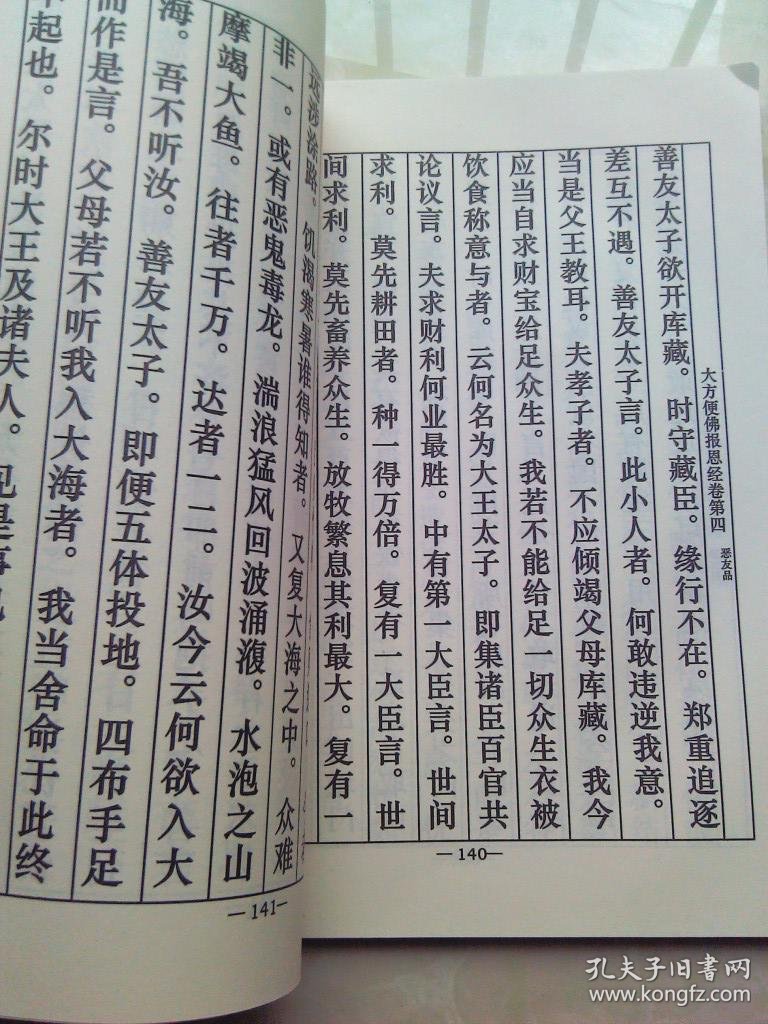 大方便佛报恩经卷第四 恶友品
善友太子欲开库藏。时守藏臣。缘行不在。郑重追逐
差互不遇。善友太子言。此小人者。何敢违逆我意。
当是父王教耳。夫孝子者。不应倾竭父母库藏。我今
应当自求财宝给足众生。我若不能给足一切众生衣被
饮食称意与者。云何名为大王太子。即集诸臣百官共
论议言。夫求财利何业最胜。中有第一大臣言。世间
求利。莫先耕田者。种一得万倍。复有一大臣言。世
间求利。莫先畜养众生。放牧繁息其利最大。复有一
—140—
远涉涂路。饥渴寒暑谁得知者。又复大海之中。众难
非一。或有恶鬼毒龙。湍浪猛风回波涌澓。水泡之山
摩竭大鱼。往者千万。达者一二。汝今云何欲入大
海。吾不听汝。善友太子。即便五体投地。四布手足
而作是言。父母若不听我入大海者。我当舍命于此终
起也。尔时大王及诸夫人。见是事
—141—
孔夫子旧书网
www.kongfz.com